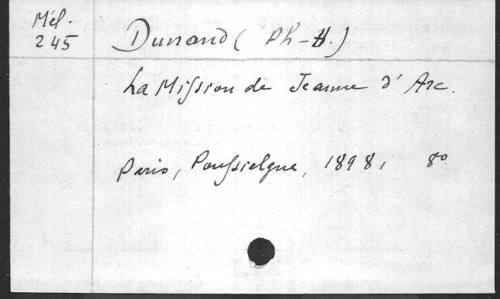 Mél.
245
Dunand (Ph-H.)
La Mission de Jeanne d'Arc.
Paris, Poussielgue, 1898, 8°